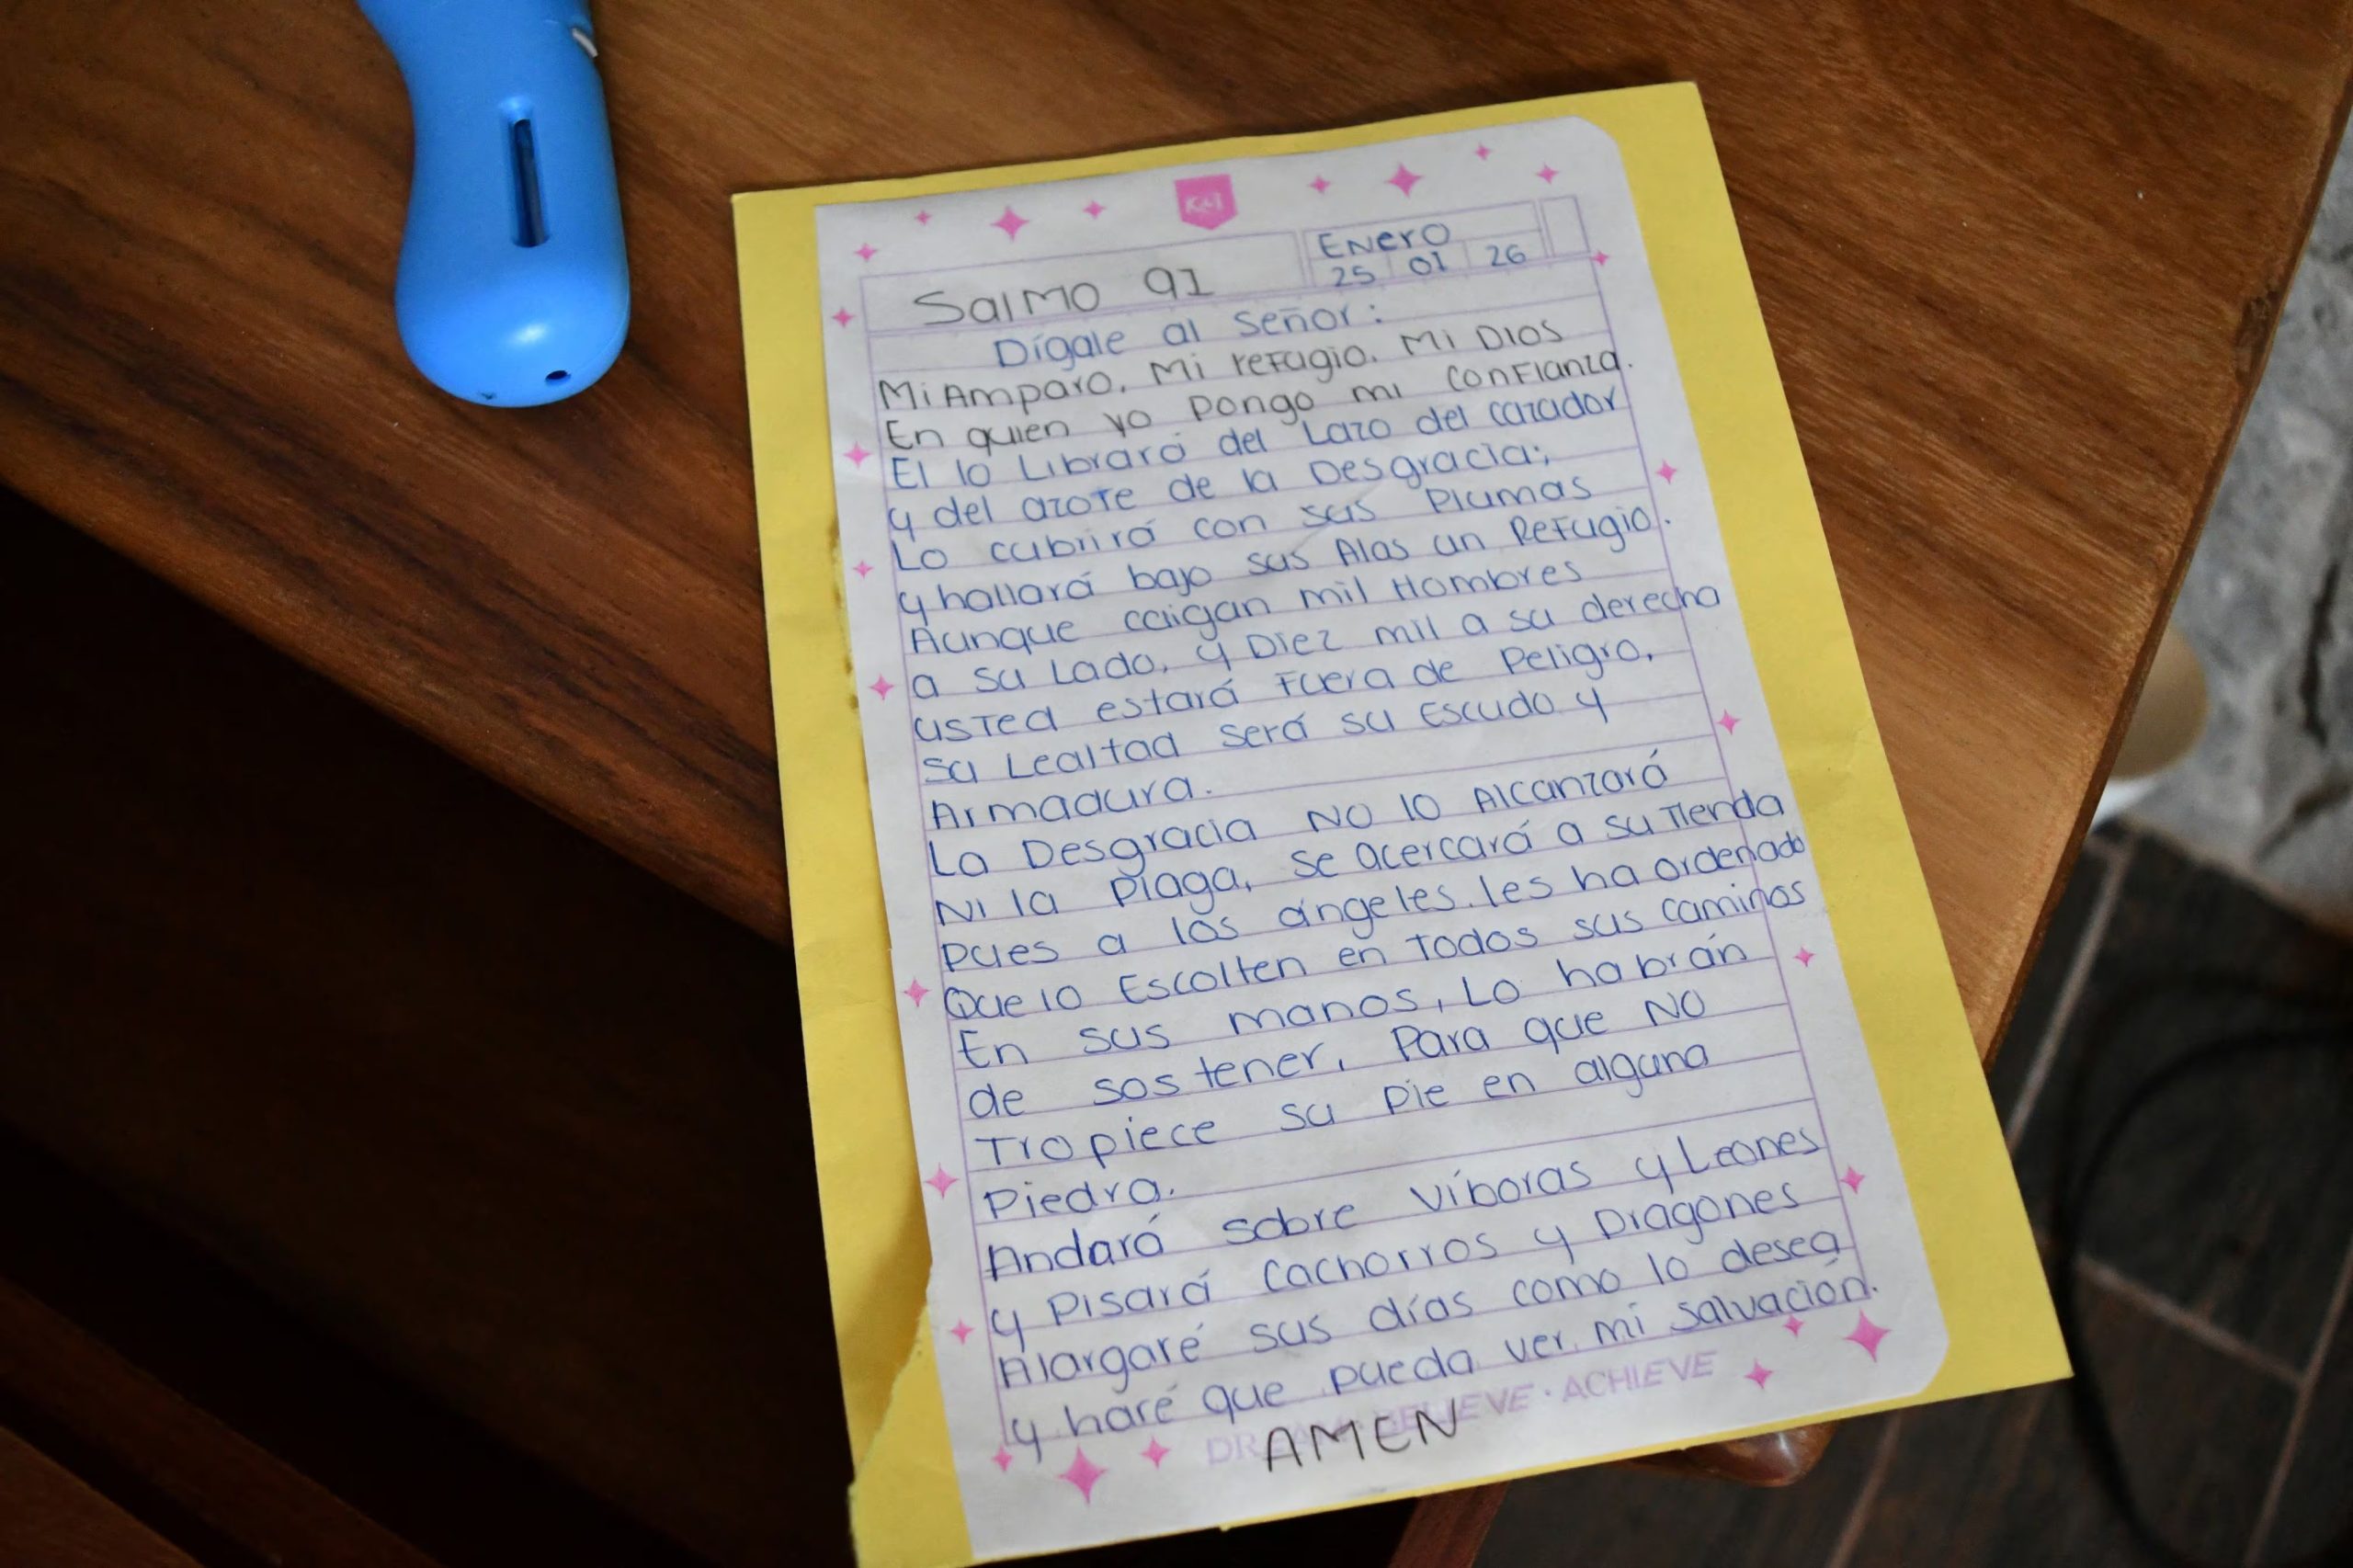 Salmo 91
Enero
25 01 26
Dígale al Señor:
Mi Amparo, Mi refugio. Mi DIOS
En quien yo Pongo mi confianza.
El lo Librará del Lazo del cazador
y del azote de la Desgracia;
Lo cubrirá con sus Plumas
y hallará bajo sus Alas un Refugio.
Aunque caigan mil Hombres
a su Lado, y Diez mil a su derecha
usted estará Fuera de Peligro,
su Lealtad será su Escudo y
Armadura.
La Desgracia NO lo Alcanzará
Ni la Plaga, se acercará a su Tienda
Pues a los ángeles. les ha ordenado
Que lo Escolten en Todos sus caminos
En sus manos, Lo habrán
de sostener, Para que NO
Tropiece su Pie en alguna
Piedra.
Andará sobre víboras y Leones
y Pisará Cachorros y Dragones
Alargaré sus días como lo desea
y haré que pueda ver mi salvación.
DREAM · BELIEVE · ACHIEVE
AMEN